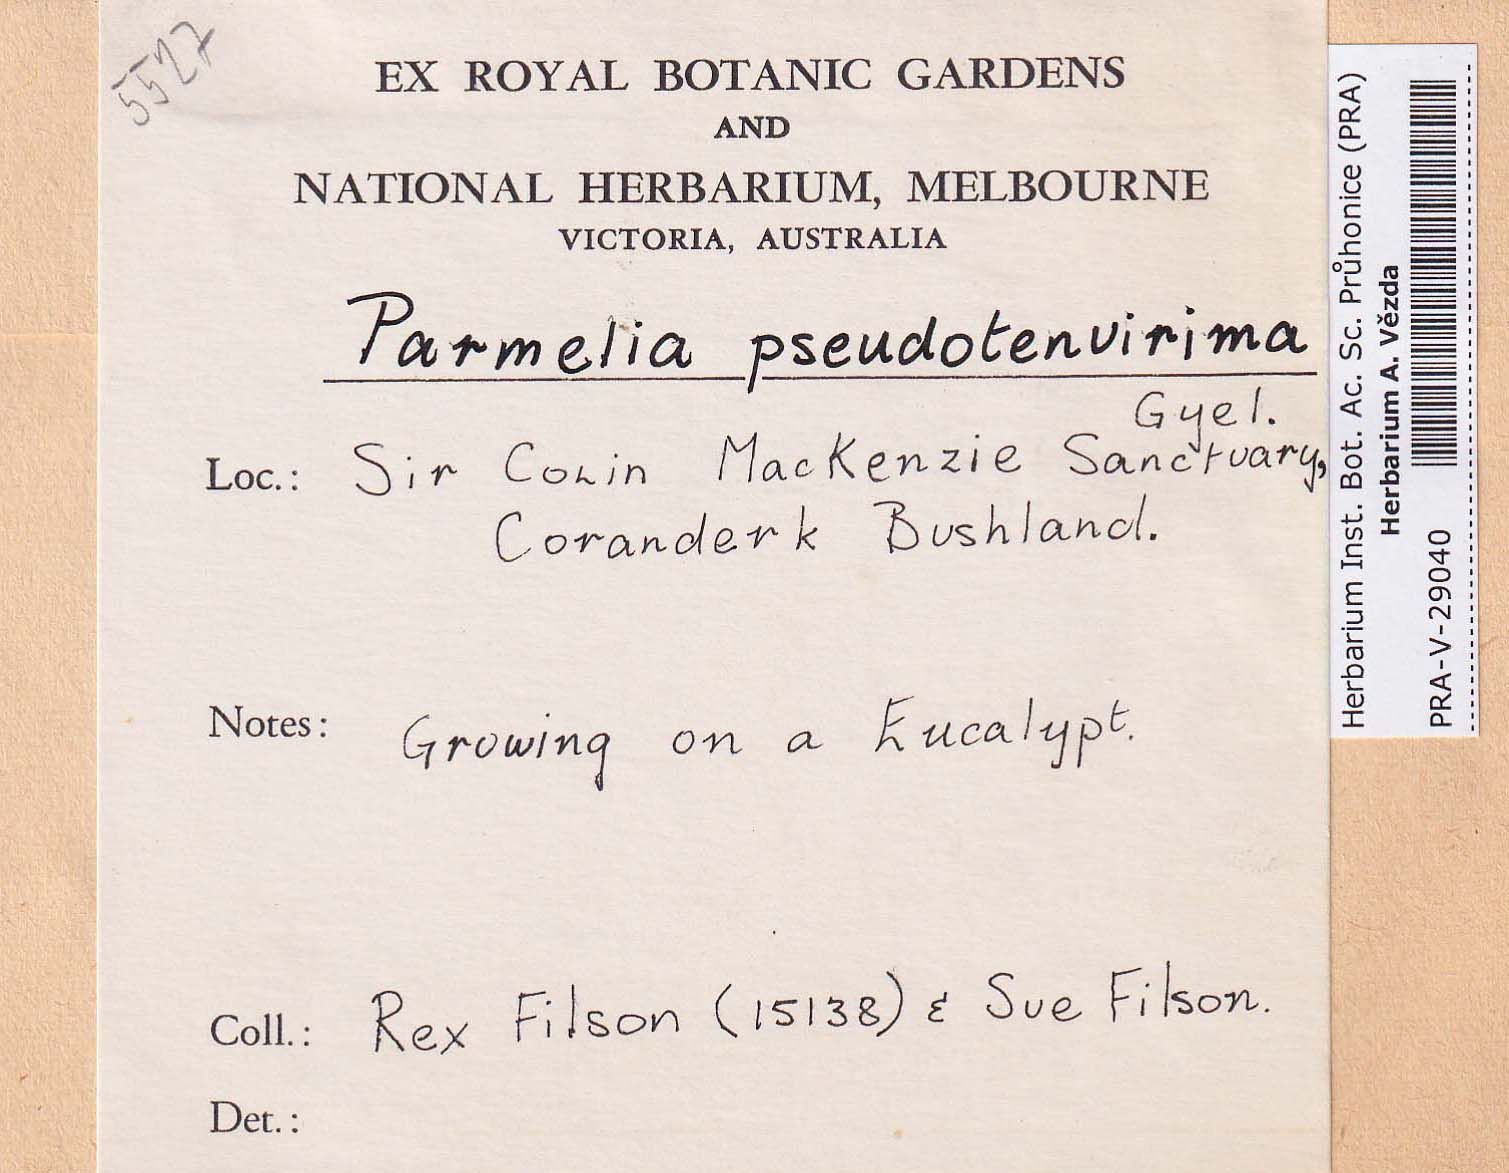 5527
EX ROYAL BOTANIC GARDENS
AND
NATIONAL HERBARIUM, MELBOURNE
VICTORIA, AUSTRALIA
Parmelia pseudotenvirima
Gyel.
Loc.: Sir Colin MacKenzie Sanctuary,
Coranderrk Bushland.
Notes: Growing on a Eucalypt.
Coll.: Rex Filson (15138) & Sue Filson.
Det.:
Herbarium Inst. Bot. Ac. Sc. Průhonice (PRA)
Herbarium A. Vězda
PRA-V-29040